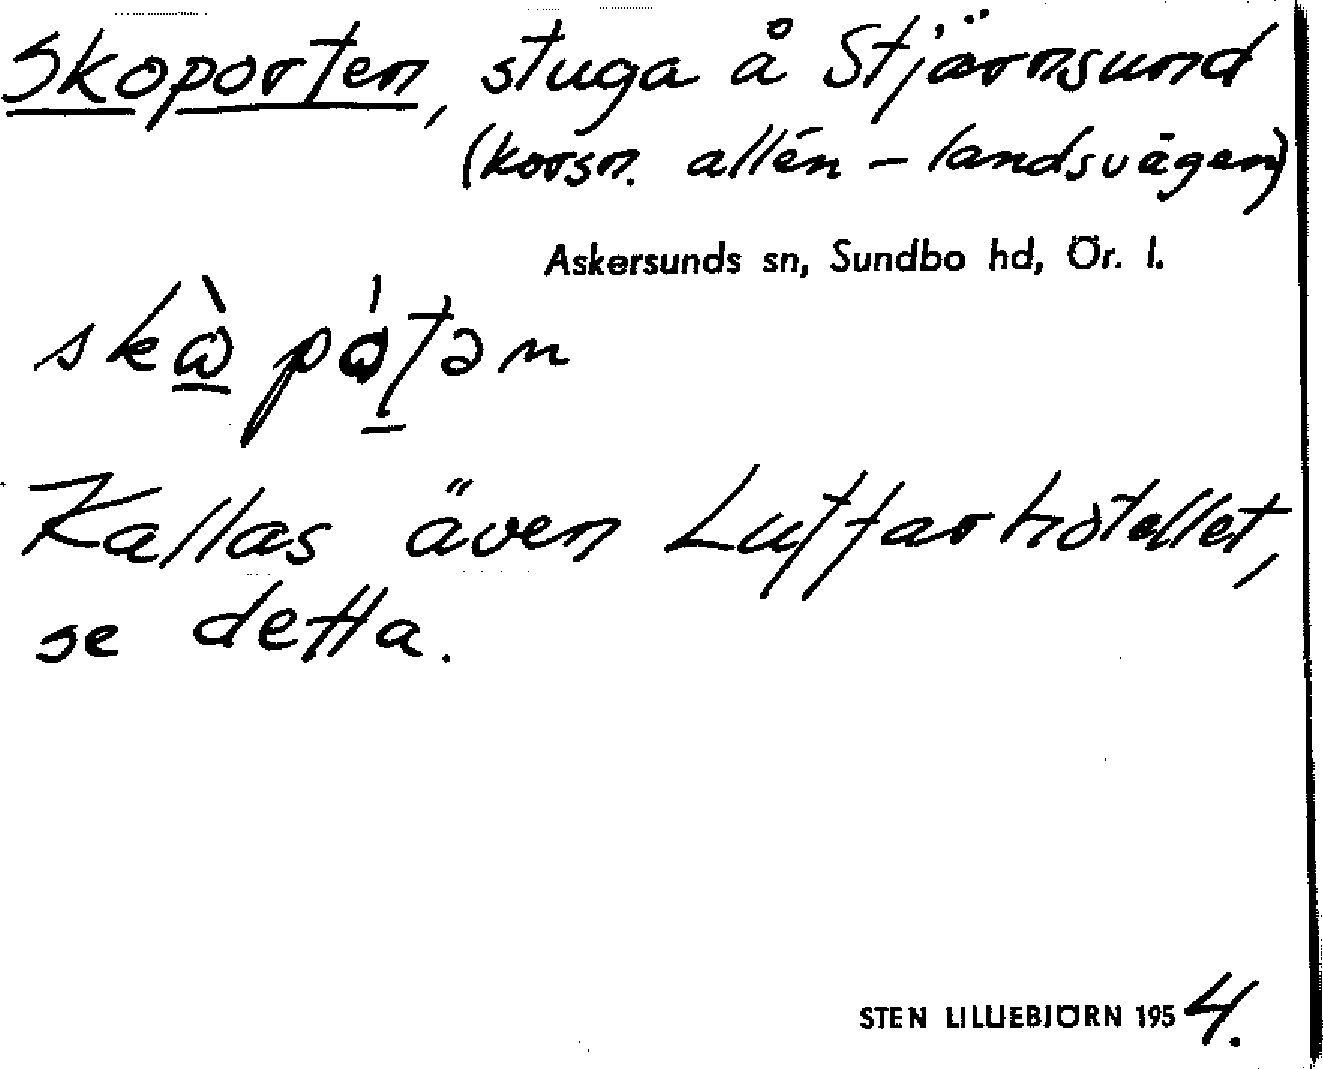 Skoporten, stuga å Stjärnsund
(korsn. allén – landsvägen)
Askersunds sn, Sundbo hd, Ör. l.
Kallas även Luffarhotellet,
se detta.
STEN LILLIEBJÖRN 1954.